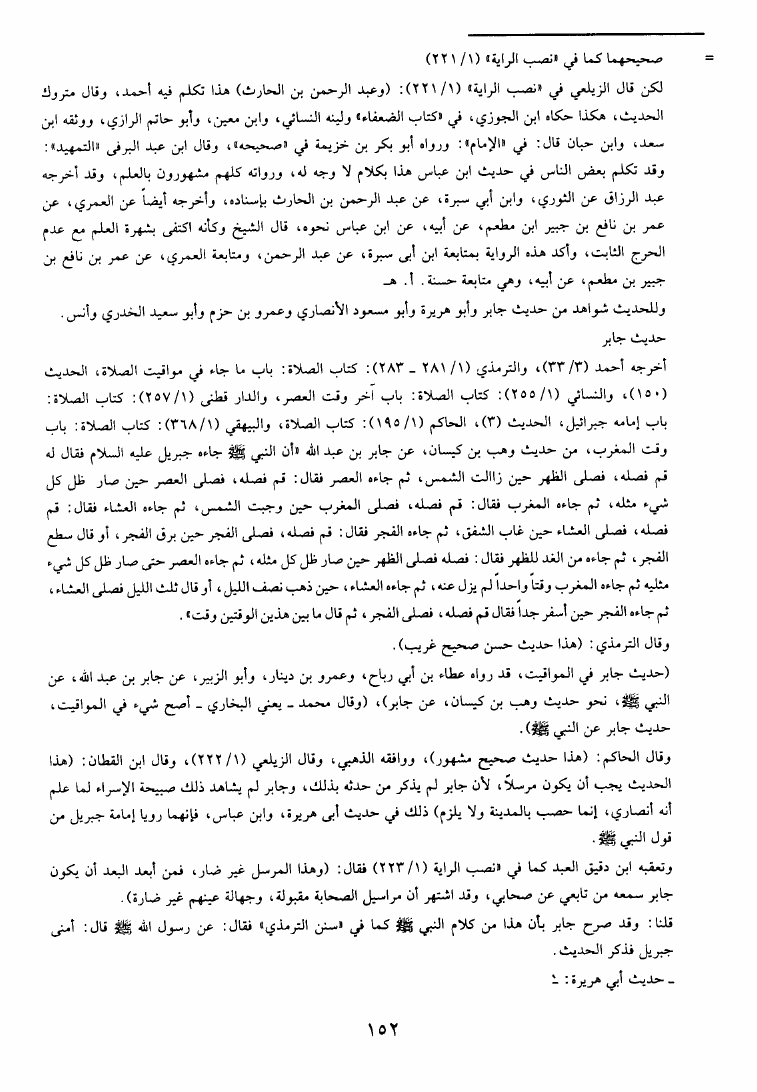 = صحيحهما كما في «نصب الراية» (١/ ٢٢١)
لكن قال الزيلعي في «نصب الراية» (١/ ٢٢١): (وعبد الرحمن بن الحارث) هذا تكلم فيه أحمد، وقال متروك
الحديث، هكذا حكاه ابن الجوزي، في «كتاب الضعفاء» ولينه النسائي، وابن معين، وأبو حاتم الرازي، ووثقه ابن
سعد، وابن حبان قال: في «الإمام»: ورواه أبو بكر بن خزيمة في «صحيحه»، وقال ابن عبد البرفى «التمهيد»:
وقد تكلم بعض الناس في حديث ابن عباس هذا بكلام لا وجه له، ورواته كلهم مشهورون بالعلم، وقد أخرجه
عبد الرزاق عن الثوري، وابن أبي سبرة، عن عبد الرحمن بن الحارث بإسناده، وأخرجه أيضاً عن العمري، عن
عمر بن نافع بن جبير ابن مطعم، عن أبيه، عن ابن عباس نحوه، قال الشيخ وكأنه اكتفى بشهرة العلم مع عدم
الحرج الثابت، وأكد هذه الرواية بمتابعة ابن أبى سبرة، عن عبد الرحمن، ومتابعة العمري، عن عمر بن نافع بن
جبير بن مطعم، عن أبيه، وهي متابعة حسنة. أ. هـ
وللحديث شواهد من حديث جابر وأبو هريرة وأبو مسعود الأنصاري وعمرو بن حزم وأبو سعيد الخدري وأنس.
حديث جابر
أخرجه أحمد (٣/ ٣٣)، والترمذي (١/ ٢٨١ ـ ٢٨٣): كتاب الصلاة: باب ما جاء في مواقيت الصلاة، الحديث
(١٥٠)، والنسائي (١/ ٢٥٥): كتاب الصلاة: باب آخر وقت العصر، والدار قطنى (١/ ٢٥٧): كتاب الصلاة:
باب إمامه جبرائيل، الحديث (٣)، الحاكم (١/ ١٩٥): كتاب الصلاة، والبيهقي (١/ ٣٦٨): كتاب الصلاة: باب
وقت المغرب، من حديث وهب بن كيسان، عن جابر بن عبد الله «أن النبي ﷺ جاءه جبريل عليه السلام فقال له
قم فصله، فصلى الظهر حين زاالت الشمس، ثم جاءه العصر فقال: قم فصله، فصلى العصر حين صار ظل كل
شيء مثله، ثم جاءه المغرب فقال: قم فصله، فصلى المغرب حين وجبت الشمس، ثم جاءه العشاء فقال: قم
فصله، فصلى العشاء حين غاب الشفق، ثم جاءه الفجر فقال: قم فصله، فصلى الفجر حين برق الفجر، أو قال سطع
الفجر، ثم جاءه من الغد للظهر فقال: فصله فصلى الظهر حين صار ظل كل مثله، ثم جاءه العصر حتى صار ظل كل شيء
مثليه ثم جاءه المغرب وقتاً واحداً لم يزل عنه، ثم جاءه العشاء، حين ذهب نصف الليل، أو قال ثلث الليل فصلى العشاء،
ثم جاءه الفجر حين أسفر جداً فقال قم فصله، فصلى الفجر، ثم قال ما بين هذين الوقتين وقت».
وقال الترمذي: (هذا حديث حسن صحيح غريب).
(حديث جابر في المواقيت، قد رواه عطاء بن أبي رباح، وعمرو بن دينار، وأبو الزبير، عن جابر بن عبد الله، عن
النبي ﷺ، نحو حديث وهب بن كيسان، عن جابر)، (وقال محمد ـ يعني البخاري ـ أصح شيء في المواقيت،
حديث جابر عن النبي ﷺ).
وقال الحاكم: (هذا حديث صحيح مشهور)، ووافقه الذهبي، وقال الزيلعي (١/ ٢٢٢)، وقال ابن القطان: (هذا
الحديث يجب أن يكون مرسلاً، لأن جابر لم يذكر من حدثه بذلك، وجابر لم يشاهد ذلك صبيحة الإسراء لما علم
أنه أنصاري، إنما حصب بالمدينة ولا يلزم) ذلك في حديث أبى هريرة، وابن عباس، فإنهما رويا إمامة جبريل من
قول النبي ﷺ.
وتعقبه ابن دقيق العبد كما في «نصب الراية (١/ ٢٢٣) فقال: (وهذا المرسل غير ضار، فمن أبعد البعد أن يكون
جابر سمعه من تابعي عن صحابي، وقد اشتهر أن مراسيل الصحابة مقبولة، وجهالة عينهم غير ضارة).
قلنا: وقد صرح جابر بأن هذا من كلام النبي ﷺ كما في «سنن الترمذي» فقال: عن رسول الله ﷺ قال: أمنى
جبريل فذكر الحديث.
ـ حديث أبي هريرة: =
١٥٢